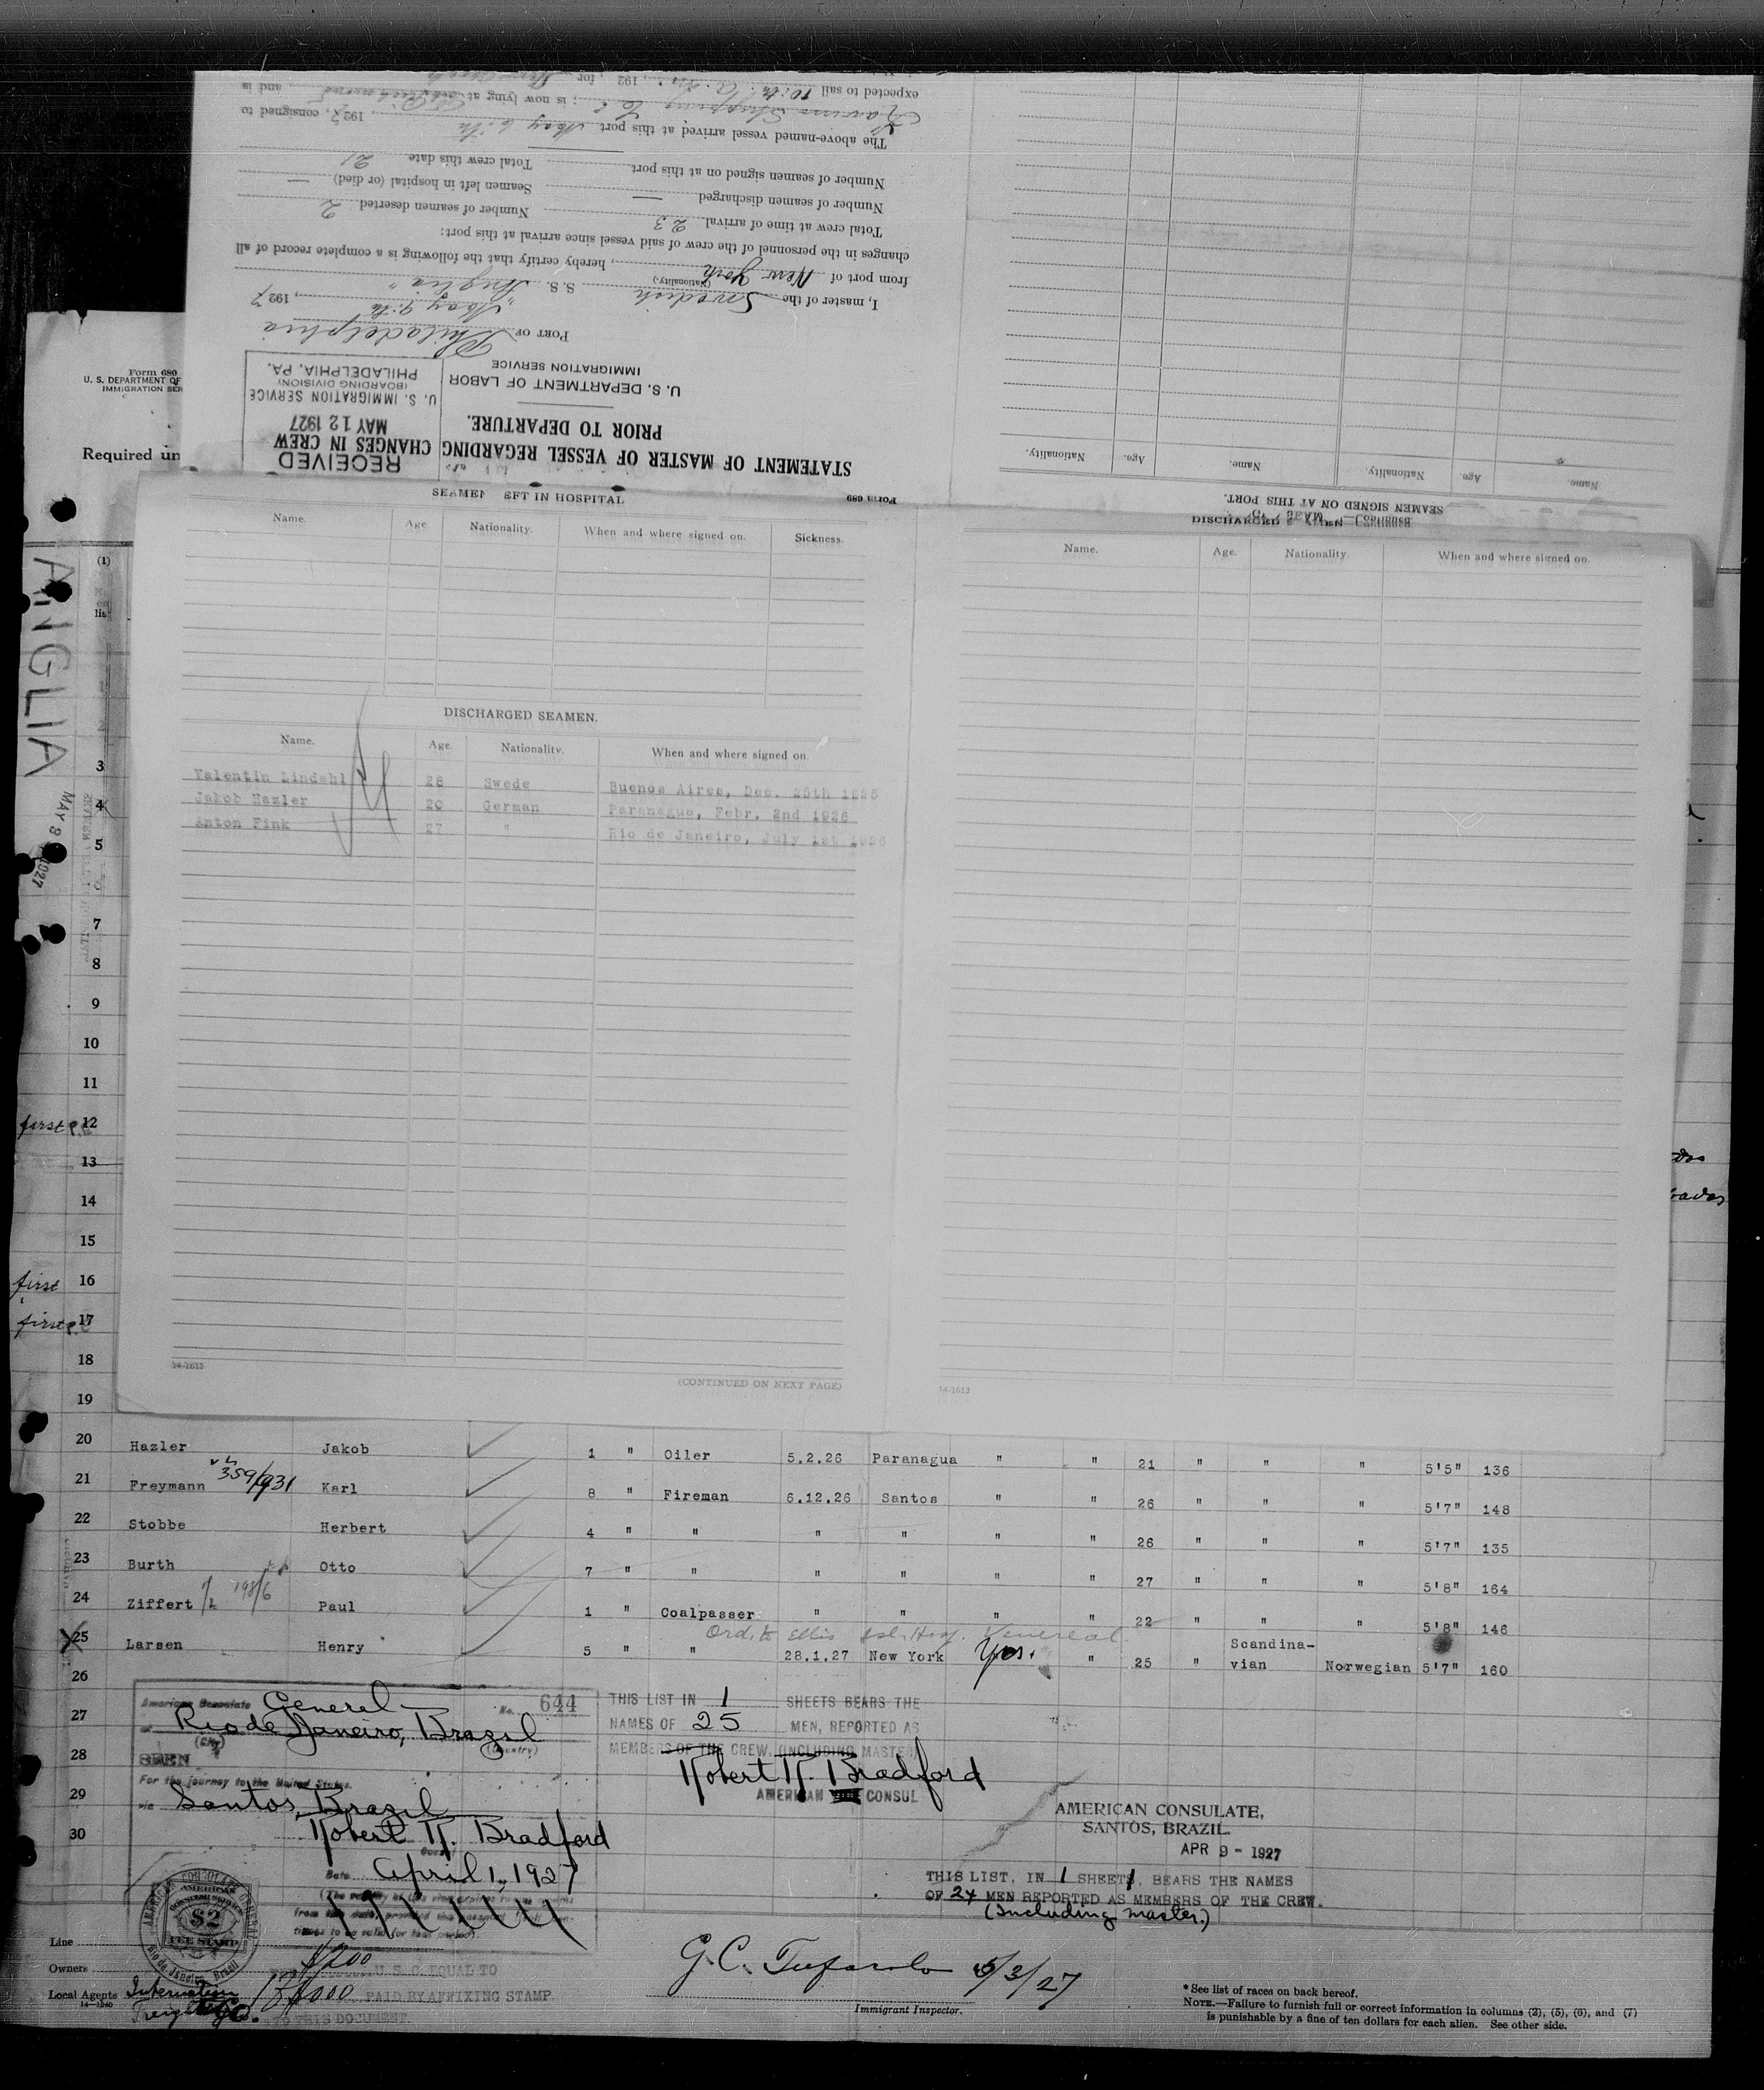 STATEMENT OF MASTER OF VESSEL REGARDING CHANGES IN CREW
PRIOR TO DEPARTURE.
RECEIVED
MAY 12 1927
U. S. IMMIGRATION SERVICE
(BOARDING DIVISION)
PHILADELPHIA, PA.
U. S. DEPARTMENT OF LABOR
IMMIGRATION SERVICE
PORT OF Philadelphia
May 9:th, 1927
I, master of the Swedish S. S. "Anglia"
(Nationality)
from port of New York, hereby certify that the following is a complete record of all
changes in the personnel of the crew of said vessel since arrival at this port:
Total crew at time of arrival 23
Number of seamen deserted 2
Number of seamen discharged —
Seamen left in hospital (or died) —
Number of seamen signed on at this port
Total crew this date 21
The above-named vessel arrived at this port May 6:th, 1927, consigned to
; is now lying at , and is
expected to sail 10:th , 192 , for New York
Form 689
SEAMEN SIGNED ON AT THIS PORT.
Name. Age. Nationality. Name. Age. Nationality.
Form 680
U. S. DEPARTMENT OF
IMMIGRATION SER
Required un
ANGLIA
MAY 3 1927
(1)
SEAMEN LEFT IN HOSPITAL
Name. Age. Nationality. When and where signed on. Sickness.
DISCHARGED SEAMEN.
Name. Age. Nationality. When and where signed on.
Valentin Lindahl 28 Swede Buenos Aires, Dec. 25th 1925
Jakob Hazler 20 German Paranagua, Febr. 2nd 1926
Anton Fink 27 " Rio de Janeiro, July 1st 1926
14-1613
(CONTINUED ON NEXT PAGE)
Name. Age. Nationality. When and where signed on.
14-1613
3
4
5
7
8
9
10
11
first 12
13
14
15
first 16
first 17
18
19
20 Hazler Jakob 1 " Oiler 5.2.26 Paranagua " " 21 " " " 5'5" 136
21 Freymann 359/931 Karl 8 " Fireman 6.12.26 Santos " " 26 " " " 5'7" 148
22 Stobbe Herbert 4 " " " " " " 26 " " " 5'7" 135
23 Burth Otto 7 " " " " " " 27 " " " 5'8" 164
24 Ziffert 198/6 Paul 1 " Coalpasser " " " " 22 " " " 5'8" 146
Ord. to Ellis Isl. Hosp. Venereal
25 Larsen Henry 5 " " 28.1.27 New York Yes. " 25 " Scandina-
vian Norwegian 5'7" 160
26
27
28
29
30
American Consulate General No. 644
at Rio de Janeiro, Brazil
(City) (Country)
SEEN
For the journey to the United States.
via Santos, Brazil
Robert R. Bradford
Date April 1, 1927
AMERICAN
CONSULAR SERVICE
$2
FEE STAMP
Rio de Janeiro, Brazil
THIS LIST IN 1 SHEETS BEARS THE
NAMES OF 25 MEN, REPORTED AS
MEMBERS OF THE CREW, (INCLUDING MASTER)
Robert R. Bradford
AMERICAN VICE CONSUL
AMERICAN CONSULATE,
SANTOS, BRAZIL
APR 9 - 1927
THIS LIST, IN 1 SHEET, BEARS THE NAMES
OF 24 MEN REPORTED AS MEMBERS OF THE CREW.
(Including master.)
Line
Owners
Local Agents
14-1240
U. S. G. EQUAL TO
PAID BY AFFIXING STAMP
TO THIS DOCUMENT.
5/3/27
Immigrant Inspector.
* See list of races on back hereof.
NOTE.—Failure to furnish full or correct information in columns (2), (5), (6), and (7)
is punishable by a fine of ten dollars for each alien. See other side.